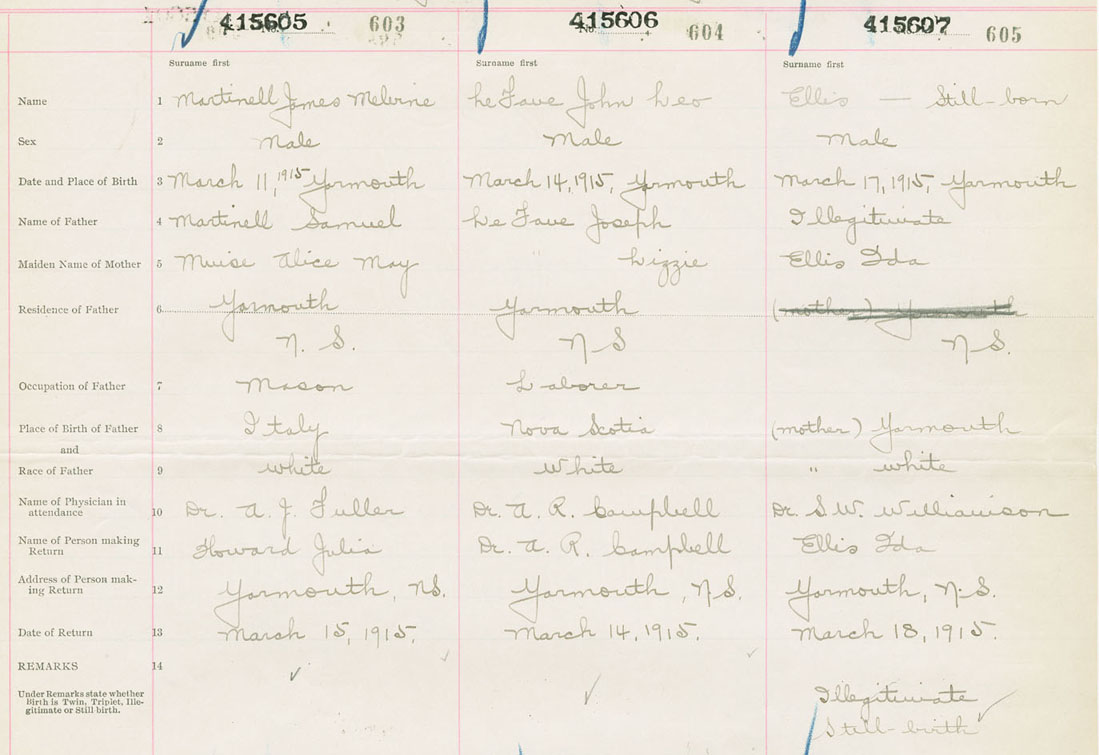 415605 603 415606 604 415607 605
Surname first Surname first Surname first
Name 1 Martinell James Melvine LeFave John Leo Ellis — Still-born
Sex 2 Male Male Male
Date and Place of Birth 3 March 11, 1915 Yarmouth March 14, 1915, Yarmouth March 17, 1915, Yarmouth
Name of Father 4 Martinell Samuel LeFave Joseph Illegitimate
Maiden Name of Mother 5 Muise Alice May " Lizzie Ellis Ida
Residence of Father 6 Yarmouth Yarmouth (mother) Yarmouth
N. S. N-S N-S.
Occupation of Father 7 Mason Laborer
Place of Birth of Father 8 Italy Nova Scotia (mother) Yarmouth
and
Race of Father 9 white White " white
Name of Physician in
attendance 10 Dr. A. J. Fuller Dr. A. R. Campbell Dr S. W. Williamson
Name of Person making
Return 11 Howard Julia Dr. A. R. Campbell Ellis Ida
Address of Person mak-
ing Return 12 Yarmouth, NS. Yarmouth, N-S. Yarmouth, N-S.
Date of Return 13 March 15, 1915. March 14, 1915. March 18, 1915.
REMARKS 14
Under Remarks state whether
Birth is Twin, Triplet, Ille-
gitimate or Still-birth.
Illegitimate
Still-birth